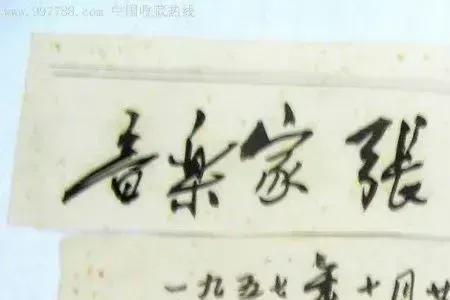 www.997788.com 中国收藏热线
音樂家 張
一九五七年十月廿